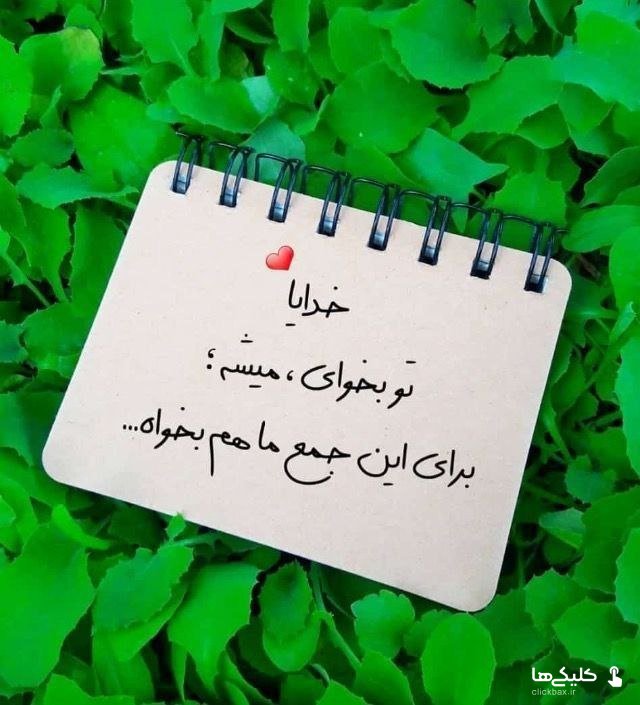 خدایا
تو بخوای ، میشه ؛
برای این جمع ما هم بخواه...
کلیکی‌ها
clickbax.ir